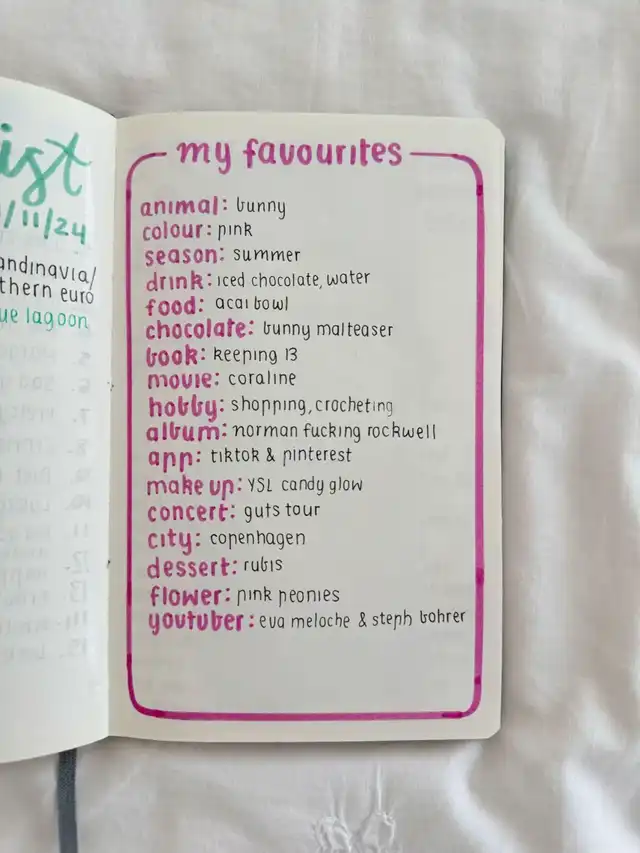 ist
/11/24
andinavia/
thern euro
ue lagoon
my favourites
animal: bunny
colour: pink
season: summer
drink: iced chocolate, water
food: acai bowl
chocolate: bunny malteaser
book: keeping 13
movie: coraline
hobby: shopping, crocheting
album: norman fucking rockwell
app: tiktok & pinterest
make up: YSL candy glow
concert: guts tour
city: copenhagen
dessert: rubis
flower: pink peonies
youtuber: eva meloche & steph bohrer